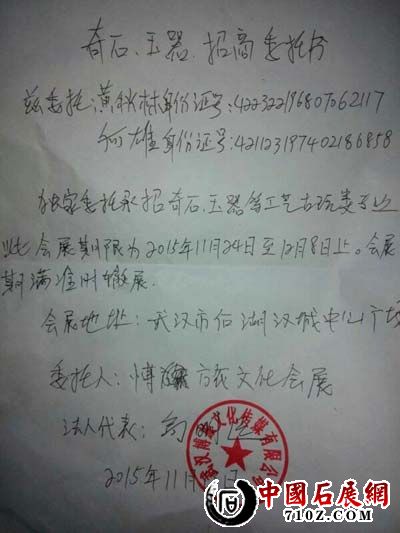 奇石、玉器、招商委托书
兹委托:黄秋林身份证号:422322196807062117
何雄身份证号:421123197402186858
独家委托承招奇石、玉器等工艺古玩类
此会展期限为2015年11月24日至12月8日止。会展
期满准时撤展.
会展地址:武汉市后湖汉城中心广场
委托人:博 文化会展
法人代表:
文化传媒有限公司
2015年11月
中國石展網
7102.COM